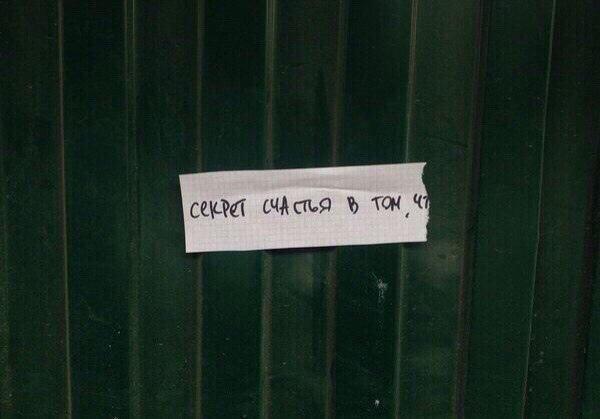 СЕКРЕТ СЧАСТЬЯ В ТОМ, ЧТ